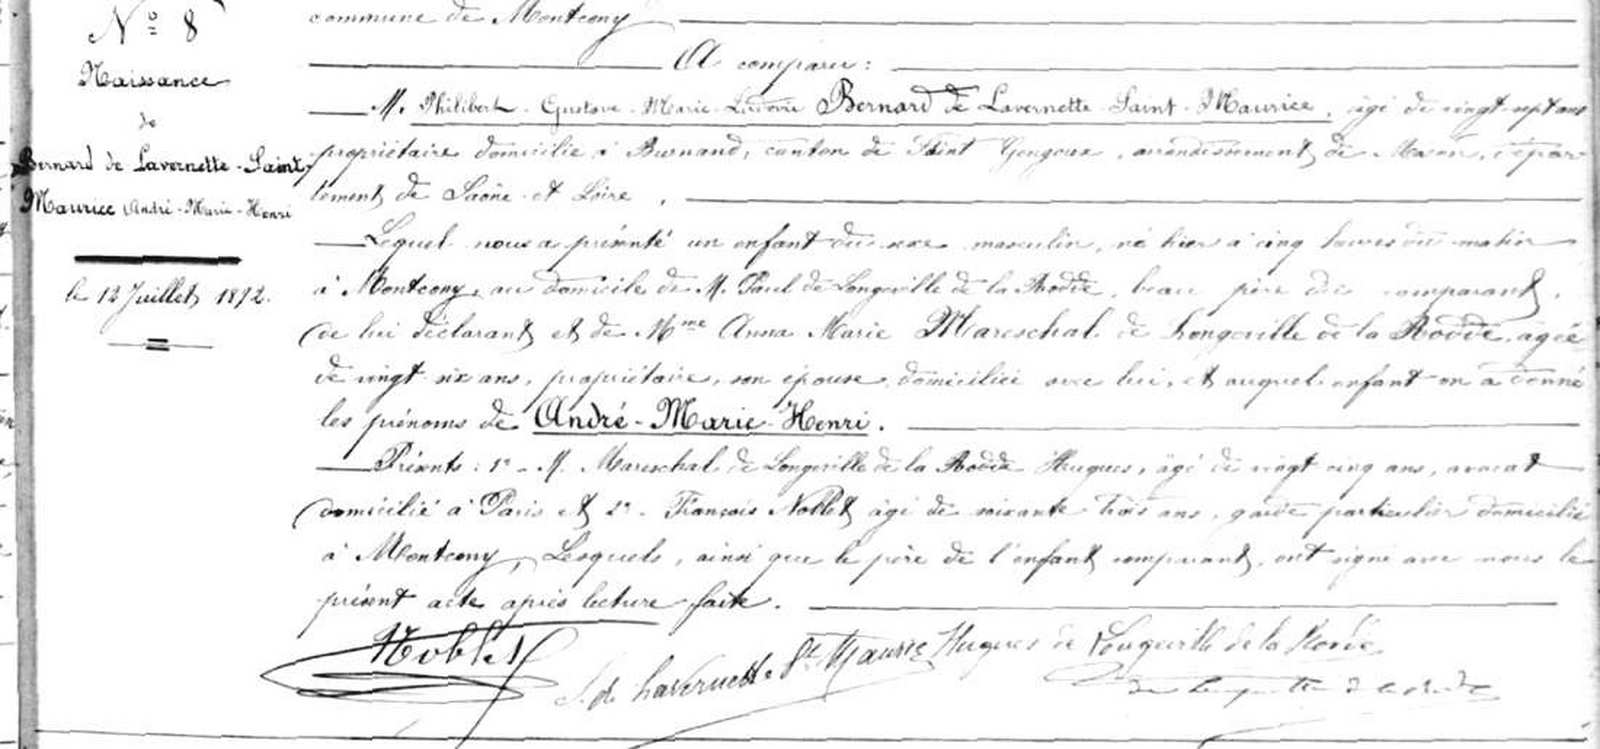 N° 8
Naissance
de
Bernard de Lavernette-Saint-
Maurice André-Marie-Henri
le 12 Juillet 1872.
commune de Montcony
A comparu :
M. Philibert-Gustave-Marie-Ludovic Bernard de Lavernette-Saint-Maurice, âgé de vingt-sept ans
propriétaire domicilié à Burnand, canton de Saint Gengoux, arrondissement de Macon, dépar
tement de Saône-et-Loire,
Lequel nous a présenté un enfant du sexe masculin, né hier à cinq heures du matin
à Montcony, au domicile de M. Paul de Longeville de la Rodde, beau père du comparant,
de lui déclarant et de Mme Anna Marie Mareschal de Longeville de la Rodde, agée
de vingt six ans, propriétaire, son épouse, domiciliée avec lui, et auquel enfant on a donné
les prénoms de André-Marie-Henri.
Présents : 1° M. Mareschal de Longeville de la Rodde Hugues, âgé de vingt cinq ans, avocat
domicilié à Paris et 2° François Noblet âgé de soixante trois ans, garde particulier domicilié
à Montcony, Lesquels, ainsi que le père de l'enfant comparant, ont signé avec nous le
présent acte après lecture faite.
Noblet
de Lavernette St Maurice Hugues de Longeville de la Rodde